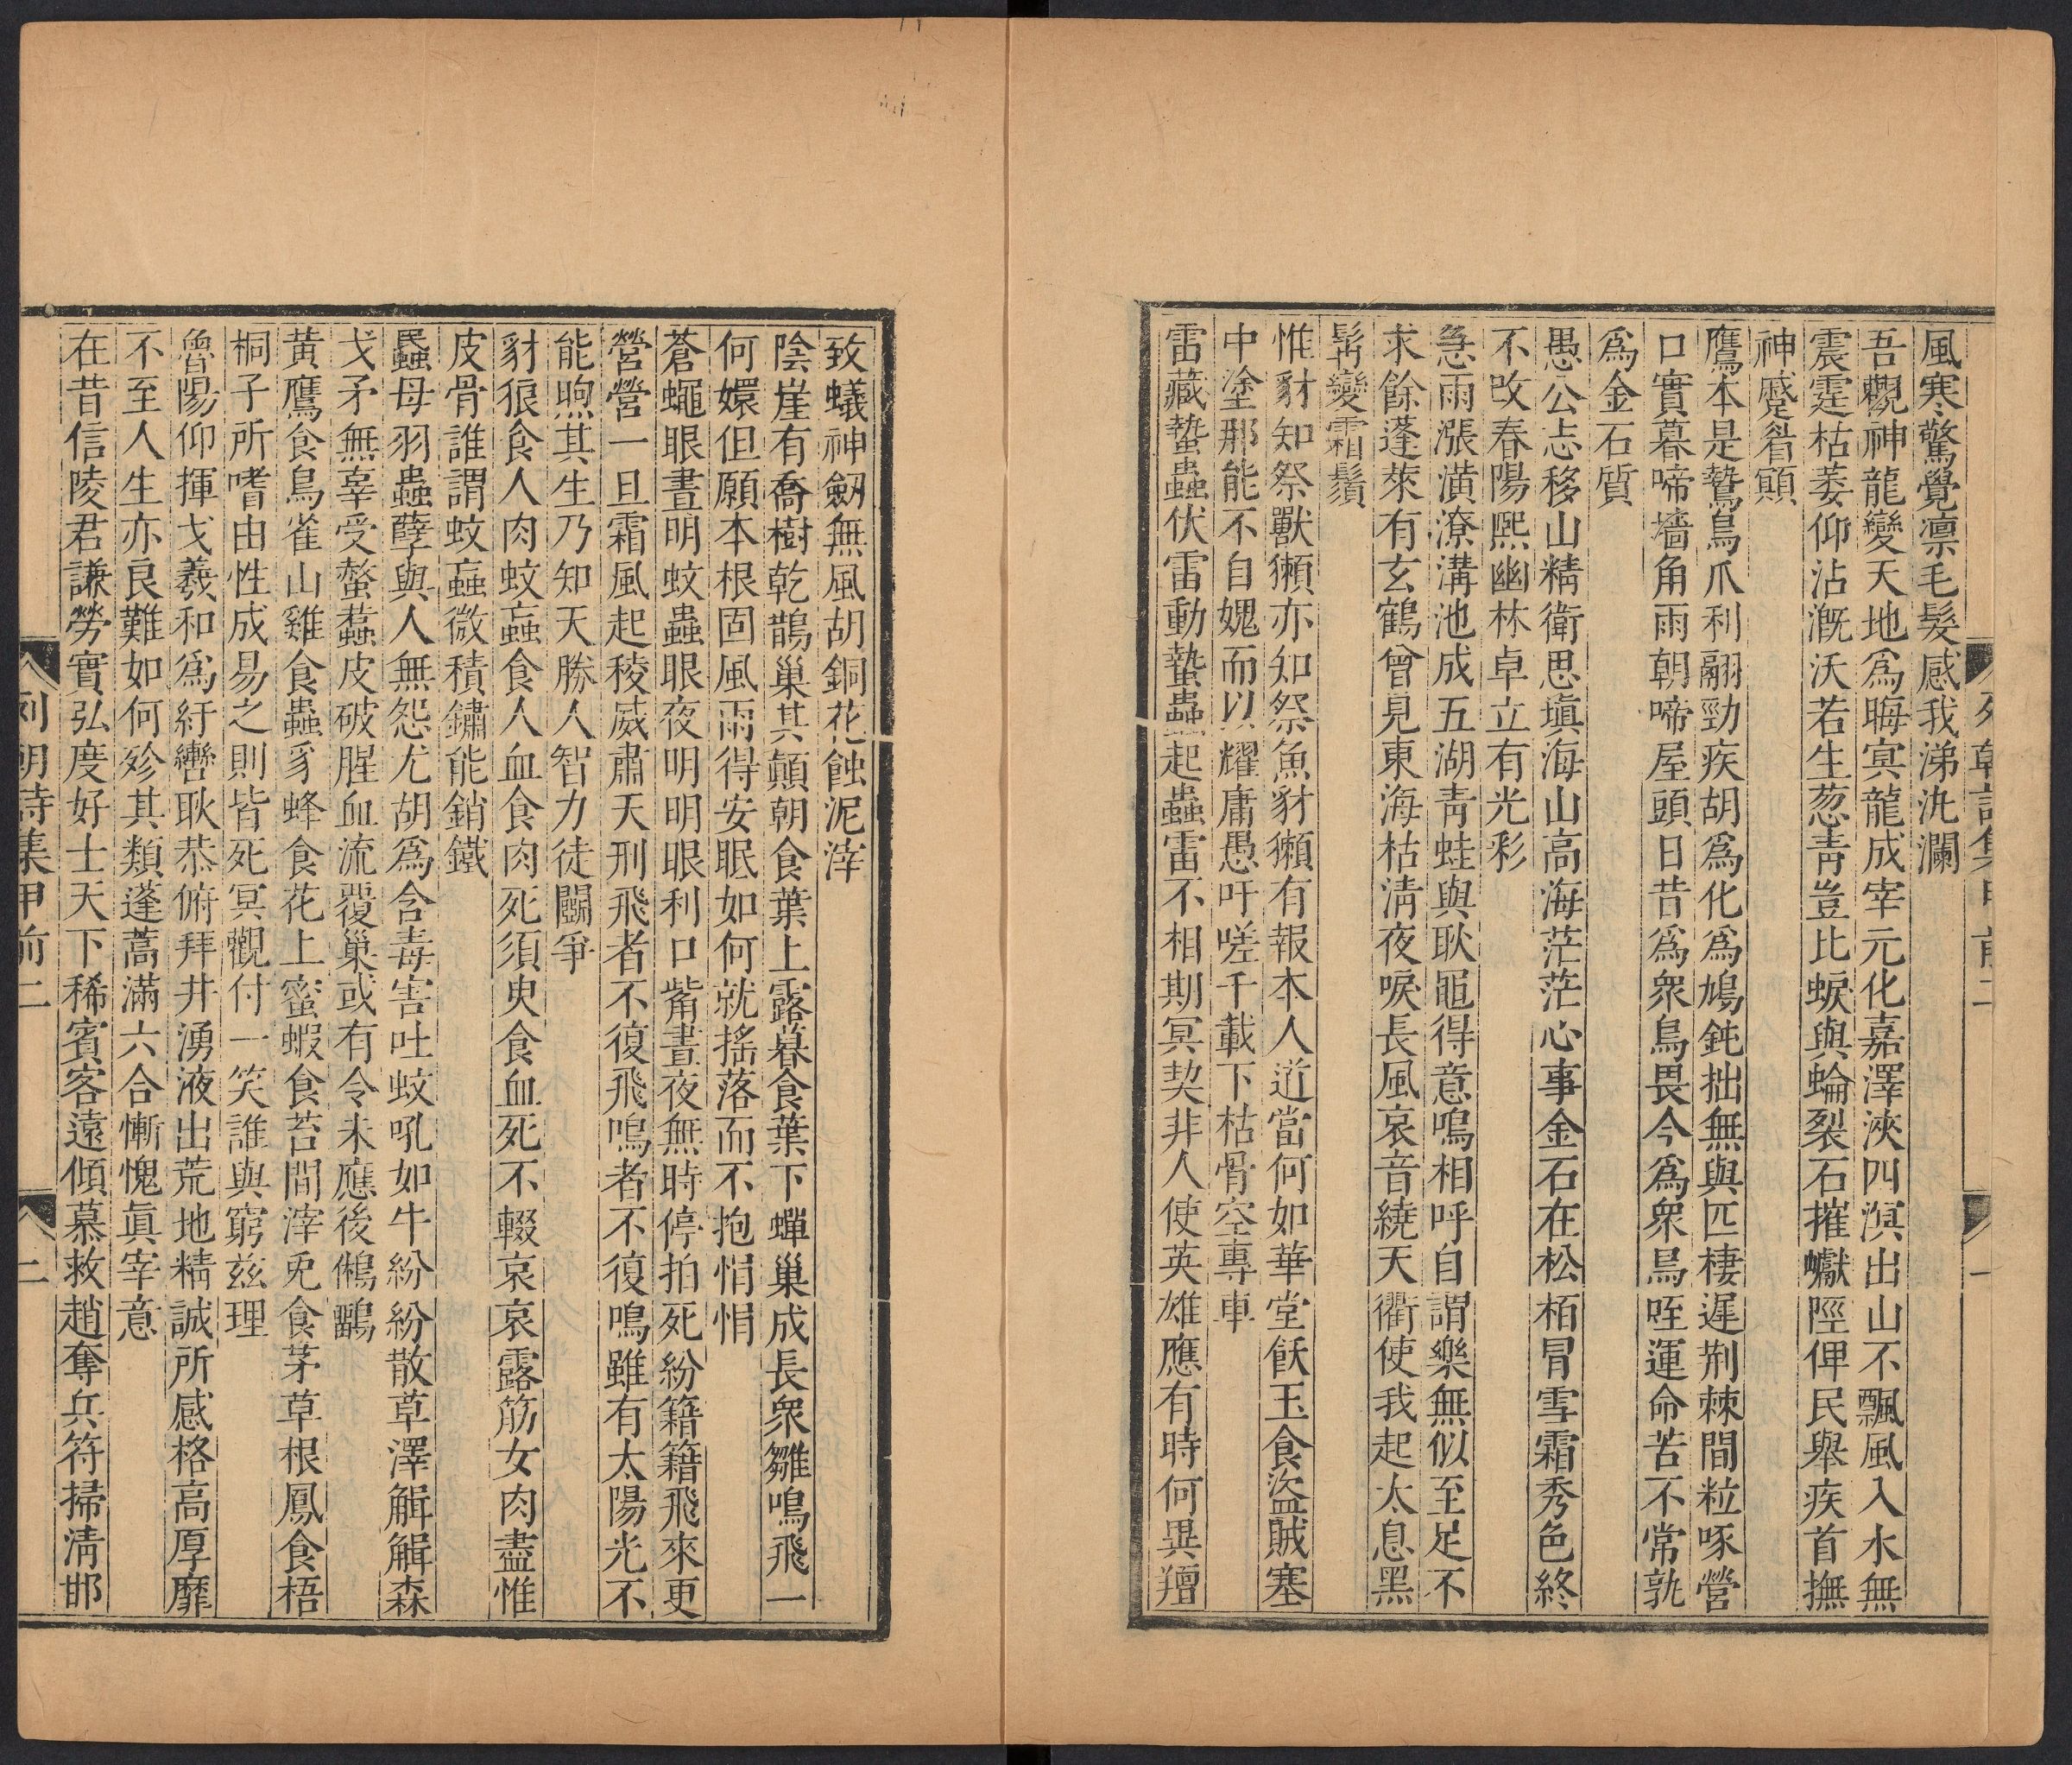 列朝詩集甲前二 一
風寒驚覺凛毛髮感我涕汍瀾
吾觀神龍變天地爲晦冥龍成宰元化嘉澤浹四溟出山不飄風入水無
震霆枯萎仰沾溉沃若生葱靑豈比蜧與蜦裂石摧巘陘俾民舉疾首撫
神慼眷顧
鷹本是鷙鳥爪利翮勁疾胡爲化爲鳩鈍拙無與匹棲遲荆棘間粒啄營
口實暮啼墻角雨朝啼屋頭日昔爲衆鳥畏今爲衆鳥咥運命苦不常孰
爲金石質
愚公忐移山精衛思塡海山高海茫茫心事金石在松栢冒雪霜秀色終
不改春陽熙幽林卓立有光彩
急雨漲潢潦溝池成五湖靑蛙與耿黽得意鳴相呼自謂樂無似至足不
求餘蓬萊有玄鶴曾見東海枯淸夜唳長風哀音繞天衢使我起太息黑
髯變霜鬚
惟豺知祭獸獺亦知祭魚豺獺有報本人道當何如華堂飫玉食盜賊塞
中塗那能不自媿而以耀庸愚吁嗟千載下枯骨空專車
雷藏蟄蟲伏雷動蟄蟲起蟲雷不相期冥契非人使英雄應有時何異羶
致蟻神劒無風胡銅花蝕泥滓
陰崖有喬樹乾鵲巢其顚朝食葉上露暮食葉下蟬巢成長衆雛鳴飛一
何嬛但願本根固風雨得安眠如何就搖落而不抱悁悁
蒼蠅眼晝明蚊蟲眼夜明明眼利口觜晝夜無時停拍死紛籍籍飛來更
營營一旦霜風起稜威肅天刑飛者不復飛鳴者不復鳴雖有太陽光不
能煦其生乃知天勝人智力徒鬬爭
豺狼食人肉蚊蝱食人血食肉死須臾食血死不輟哀哀露筋女肉盡惟
皮骨誰謂蚊蝱微積鏽能銷鐵
蟁母羽蟲孽與人無怨尤胡爲含毒害吐蚊吼如牛紛紛散草澤觮觮森
戈矛無辜受螫蠚皮破腥血流覆巢或有令未應後鵂鶹
黃鷹食鳥雀山雞食蟲豸蜂食花上蜜蝦食苔間滓兎食茅草根鳳食梧
桐子所嗜由性成易之則皆死冥觀付一笑誰與窮玆理
魯陽仰揮戈羲和爲紆轡耿恭俯拜井湧液出荒地精誠所感格高厚靡
不至人生亦良難如何殄其類蓬蒿滿六合慚愧眞宰意
在昔信陵君謙勞實弘度好士天下稀賓客遠傾慕救趙奪兵符掃淸邯
列朝詩集甲前二 二